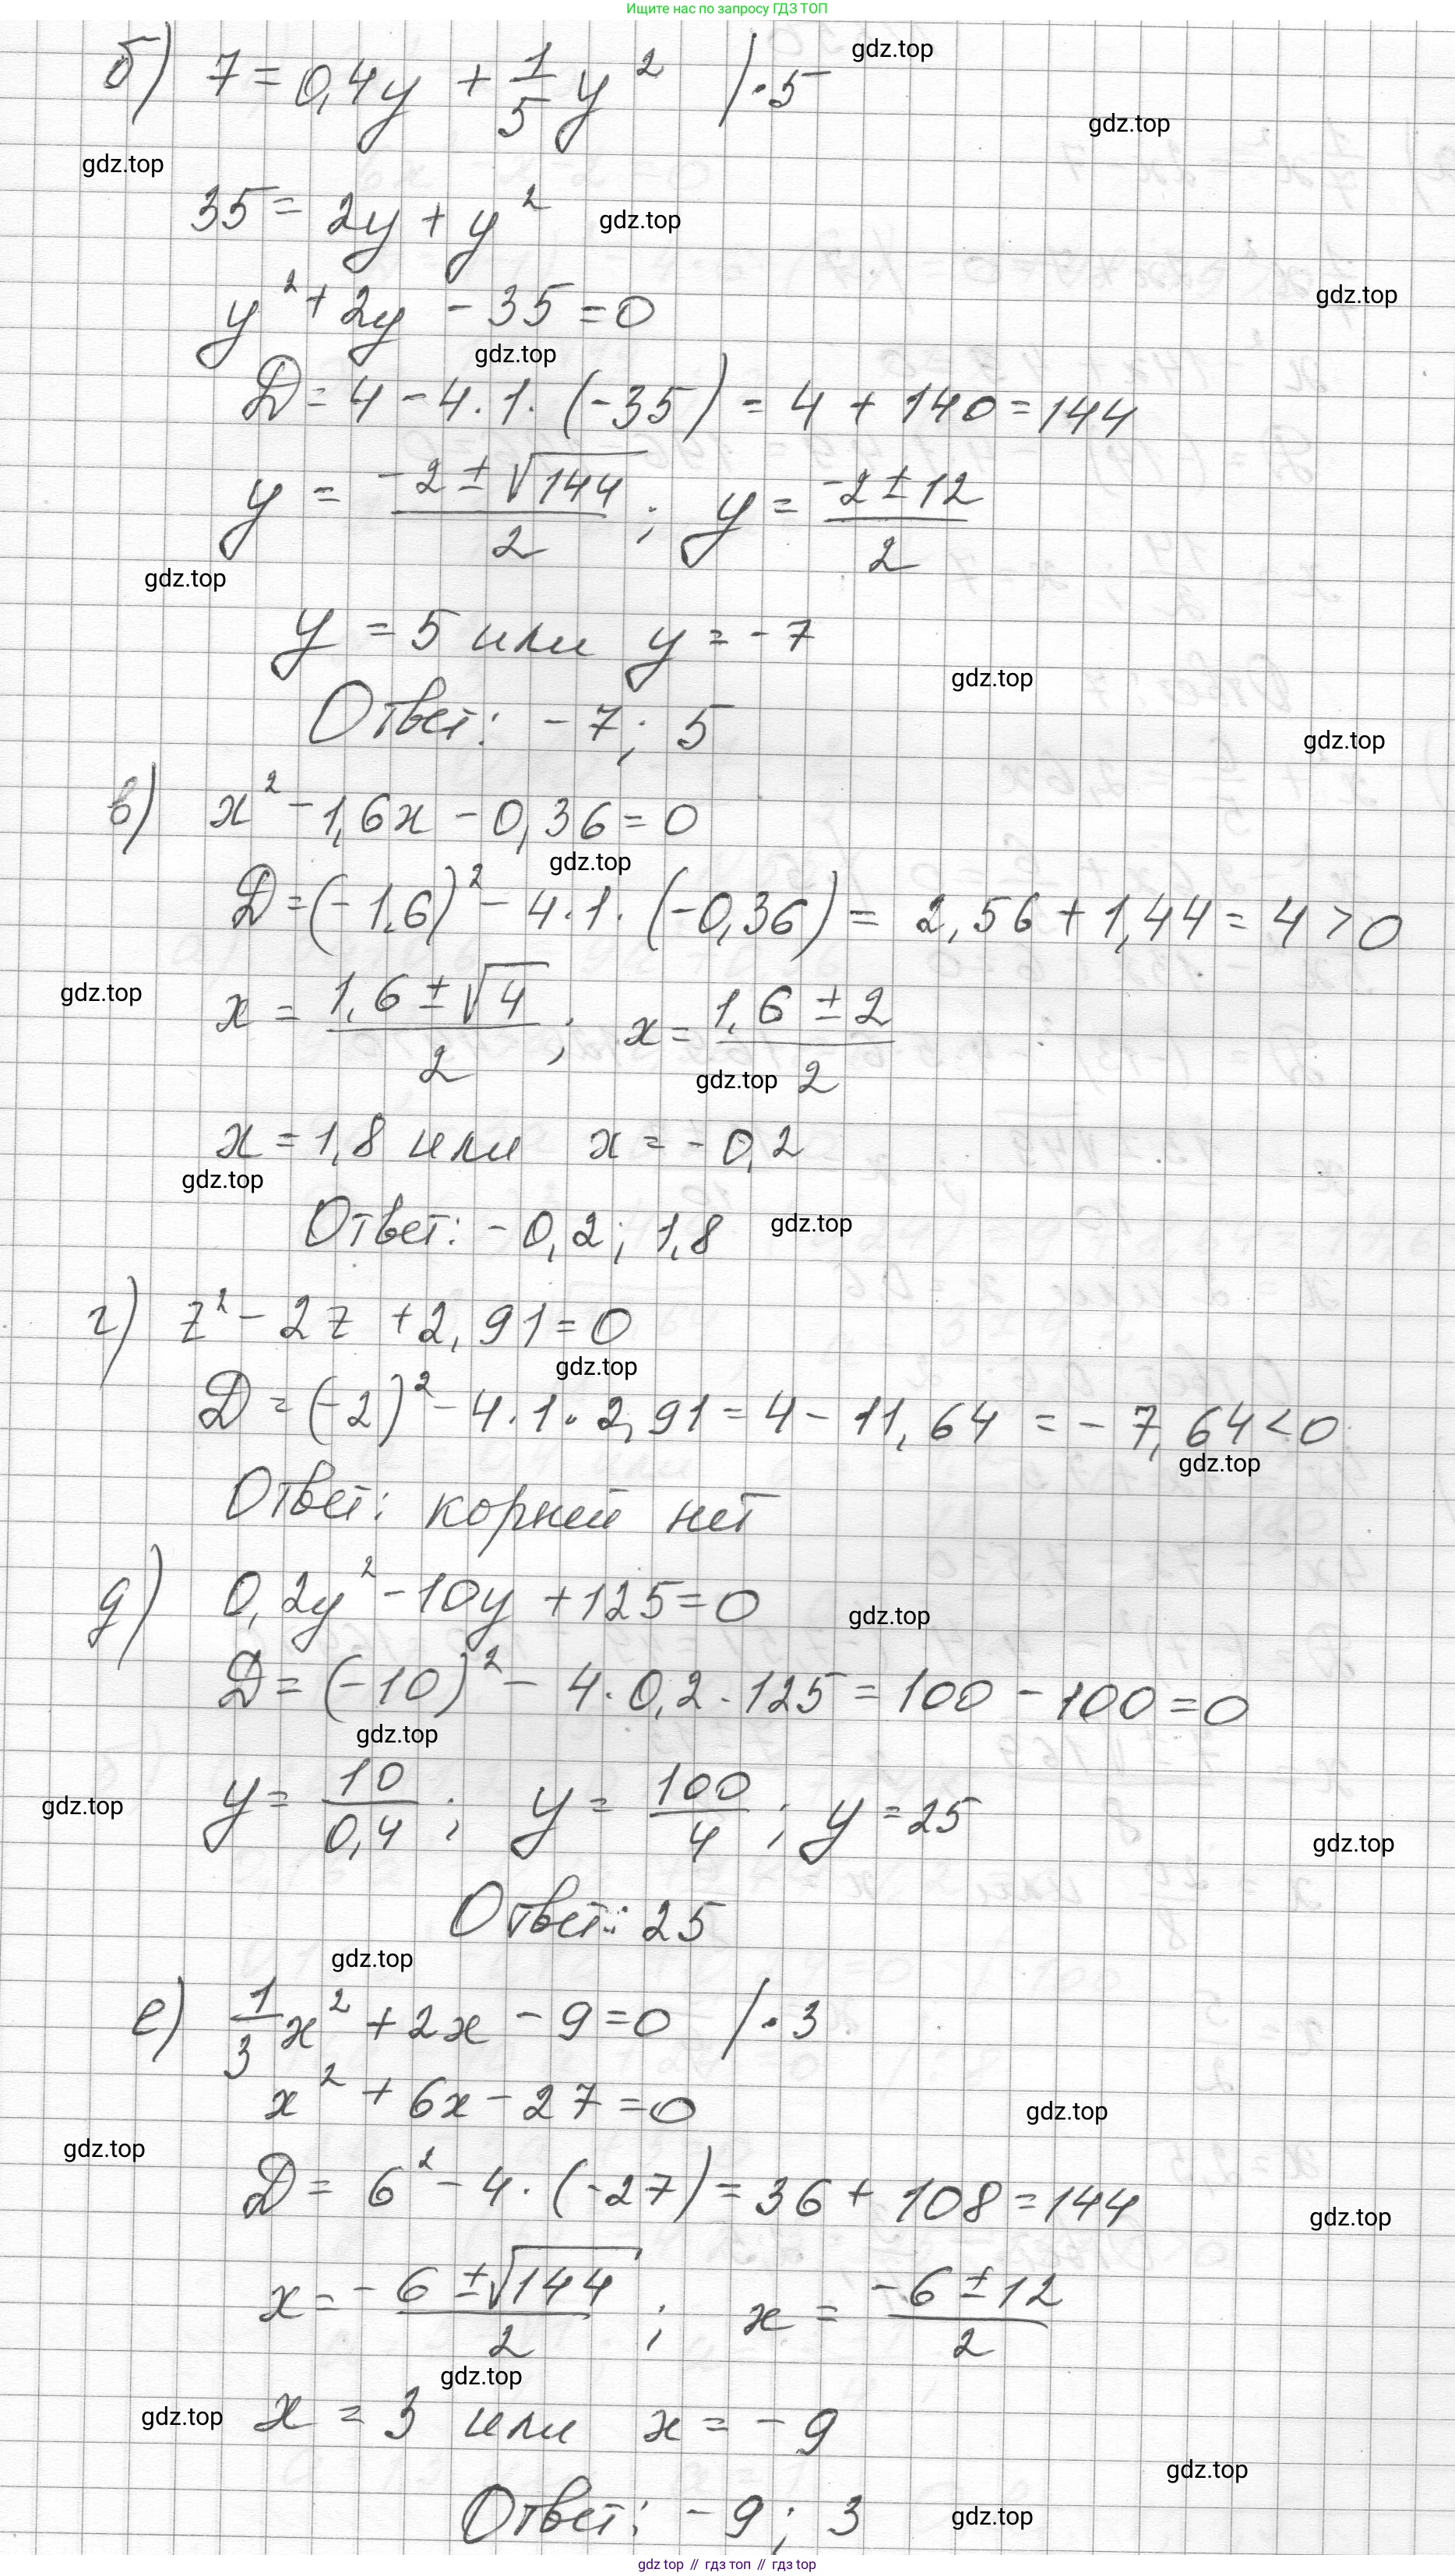 Ищите нас по запросу ГДЗ ТОП
б) 7 = 0,4y + 1/5 y² / · 5
gdz.top
gdz.top
gdz.top
35 = 2y + y²
gdz.top
gdz.top
y² + 2y - 35 = 0
gdz.top
D = 4 - 4 · 1 · (-35) = 4 + 140 = 144
y = (-2 ± √144)/2 ; y = (-2 ± 12)/2
gdz.top
y = 5 или y = -7
gdz.top
Ответ: -7; 5
gdz.top
в) x² - 1,6x - 0,36 = 0
gdz.top
D = (-1,6)² - 4 · 1 · (-0,36) = 2,56 + 1,44 = 4 > 0
gdz.top
x = (1,6 ± √4)/2 ; x = (1,6 ± 2)/2
gdz.top
x = 1,8 или x = -0,2
gdz.top
Ответ: -0,2; 1,8
gdz.top
г) z² - 2z + 2,91 = 0
gdz.top
D = (-2)² - 4 · 1 · 2,91 = 4 - 11,64 = -7,64 < 0
gdz.top
Ответ: корней нет
д) 0,2y² - 10y + 125 = 0
gdz.top
D = (-10)² - 4 · 0,2 · 125 = 100 - 100 = 0
gdz.top
gdz.top
y = 10/0,4 ; y = 100/4 ; y = 25
gdz.top
Ответ: 25
gdz.top
е) 1/3 x² + 2x - 9 = 0 / · 3
x² + 6x - 27 = 0
gdz.top
gdz.top
D = 6² - 4 · (-27) = 36 + 108 = 144
gdz.top
x = (-6 ± √144)/2 ; x = (-6 ± 12)/2
gdz.top
gdz.top
x = 3 или x = -9
gdz.top
Ответ: -9; 3
gdz.top
gdz top // гдз топ // гдз top